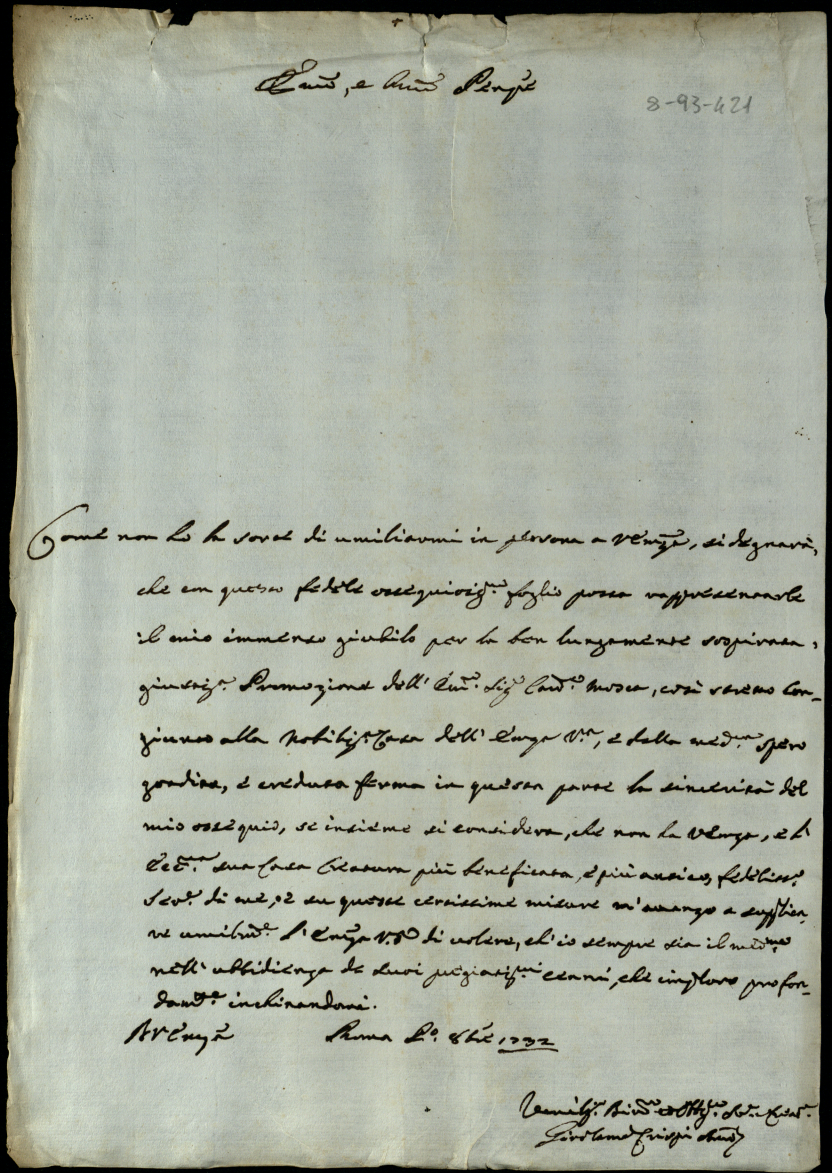 Em̃o, e Rm̃o Penp̃e
8-93-421
Come non hò la sorte di umiliarmi in persona a VEmz̃a, si degnarà,
che con questo fedele ossequiosiss.mo foglio possa rappresentarle
il mio immenso giubilo per la ben lungamente sospirata,
giustiss.a Promozione dell' Em̃o. Sig.r Card.e Mosca, così stretto Con-
giunto alla Nobiliss.a Casa dell' Emz̃a V.ra, e dalla med.ma spero
gradita, e creduta ferma in questa parte la sincerità del
mio ossequio, se insieme si considera, che non hà VEmz̃a, e l'
Ecc.ma sua Casa Creatura più beneficata, e più antico, fedeliss.o
Ser.e di me, e su queste certissime misure m'avanzo a supplica-
re umilm.te l'Emz̃a V.ra di volere, ch'io sempre sia il med.mo
nell' ubbidienza de suoi pregiatiss.mi cenni, che imploro profon-
dam.te inchinandomi.
A VEmz̃a Roma P.o 8bre 1732
Umiliss.o Div.mo et Obblig.mo Ser.e
Girolamo Crispi